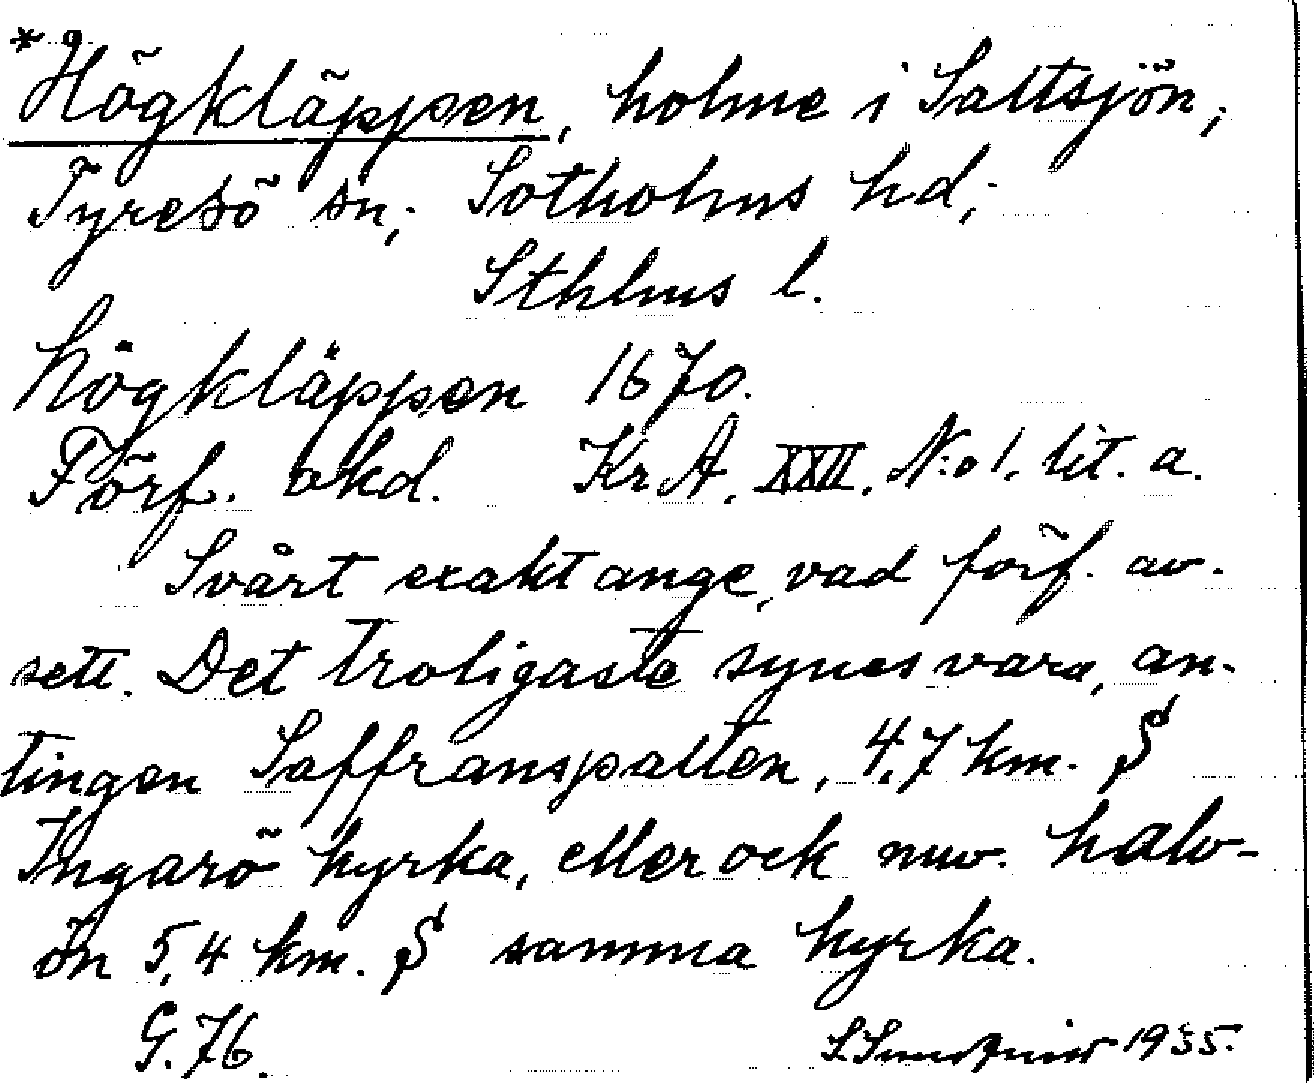 *Högkläppen, holme i Saltsjön,
Tyresö sn; Sotholms hd;
Sthlms l.
högkläppen 1670.
Förf. okd. KrA. XXII. N:o 1. lit. a.
Svårt exakt ange, vad förf. av-
sett. Det troligaste synes vara, an-
tingen Saffranspatten, 4,7 km. S
Ingarö kyrka, eller ock nuv. halv-
ön 5,4 km. S samma kyrka.
G. 76. S. Sundqvist 1935.